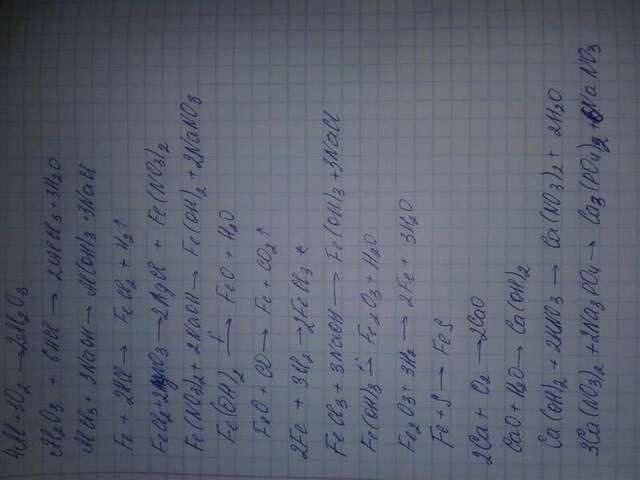 4Al + 3O₂ → 2Al₂O₃
Al₂O₃ + 6HCl → 2AlCl₃ + 3H₂O
AlCl₃ + 3NaOH → Al(OH)₃ + 3NaCl
Fe + 2HCl → FeCl₂ + H₂↑
FeCl₂ + 2AgNO₃ → 2AgCl + Fe(NO₃)₂
Fe(NO₃)₂ + 2NaOH → Fe(OH)₂ + 2NaNO₃
Fe(OH)₂ → FeO + H₂O
FeO + CO → Fe + CO₂↑
2Fe + 3Cl₂ → 2FeCl₃
FeCl₃ + 3NaOH → Fe(OH)₃ + 3NaCl
Fe(OH)₃ → Fe₂O₃ + H₂O
Fe₂O₃ + 3H₂ → 2Fe + 3H₂O
Fe + S → FeS
2Ca + O₂ → 2CaO
CaO + H₂O → Ca(OH)₂
Ca(OH)₂ + 2HNO₃ → Ca(NO₃)₂ + 2H₂O
3Ca(NO₃)₂ + 2Na₃PO₄ → Ca₃(PO₄)₂ + 6NaNO₃